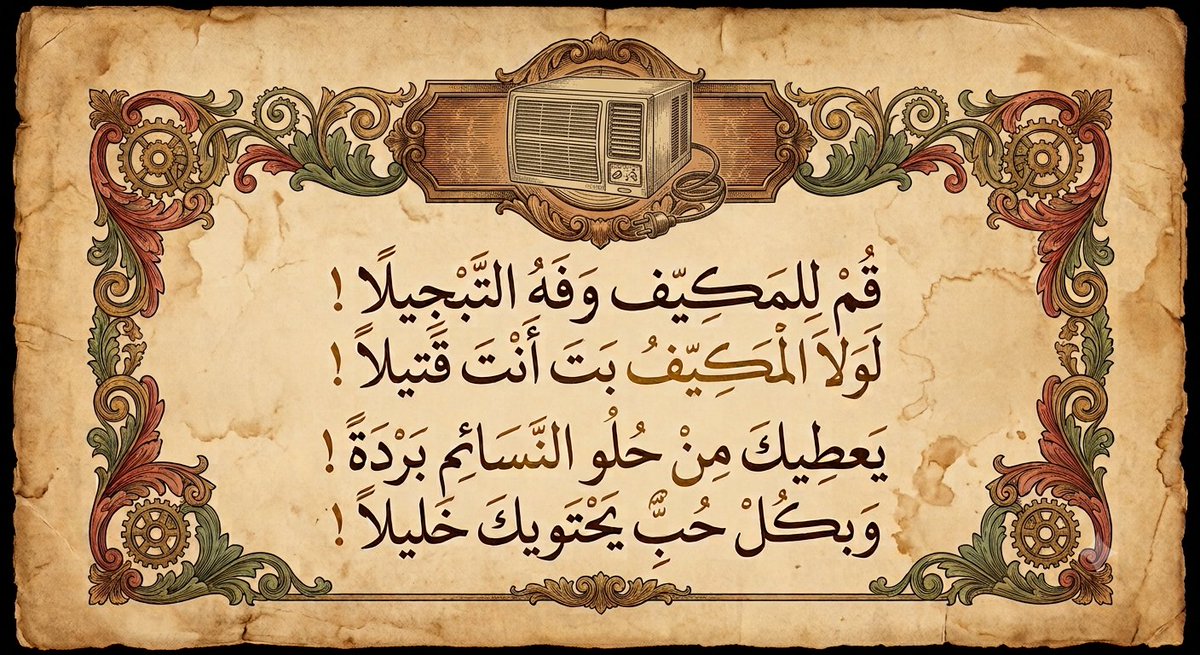 قُمْ لِلمَكِيّف وَفَهُ التَّبْجِيلًا !
لَوَلاَ الْمَكِيّفُ بَتَ أَنْتَ قَتيلاً !
يَعطِيكَ مِنْ حُلُو النَّسَائِمِ بَرْدَةً !
وَبكُلْ حُبٍّ يَحْتَويكَ خَليلاً !